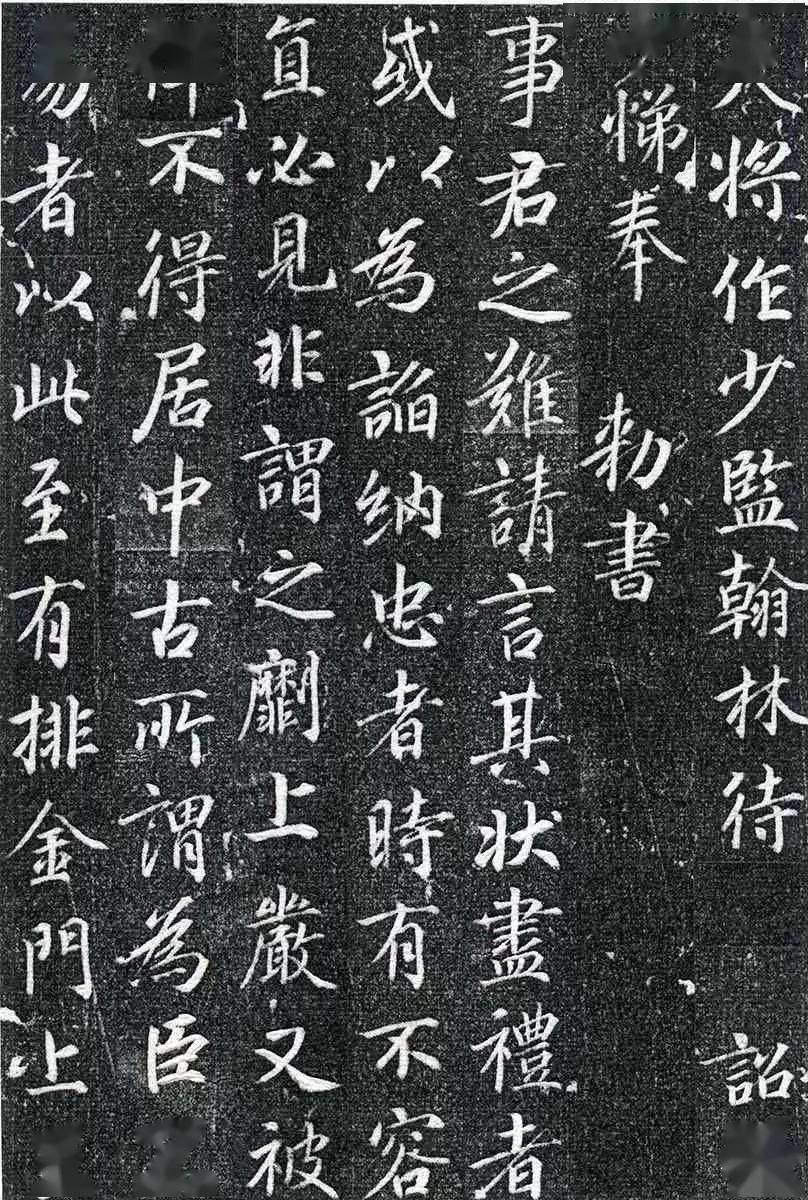 將作少監翰林待詔
悌奉勅書
事君之難請言其狀盡禮者
或以為諂納忠者時有不容
直必見非謂之劘上嚴又被
不得居中古所謂為臣
易者以此至有排金門上